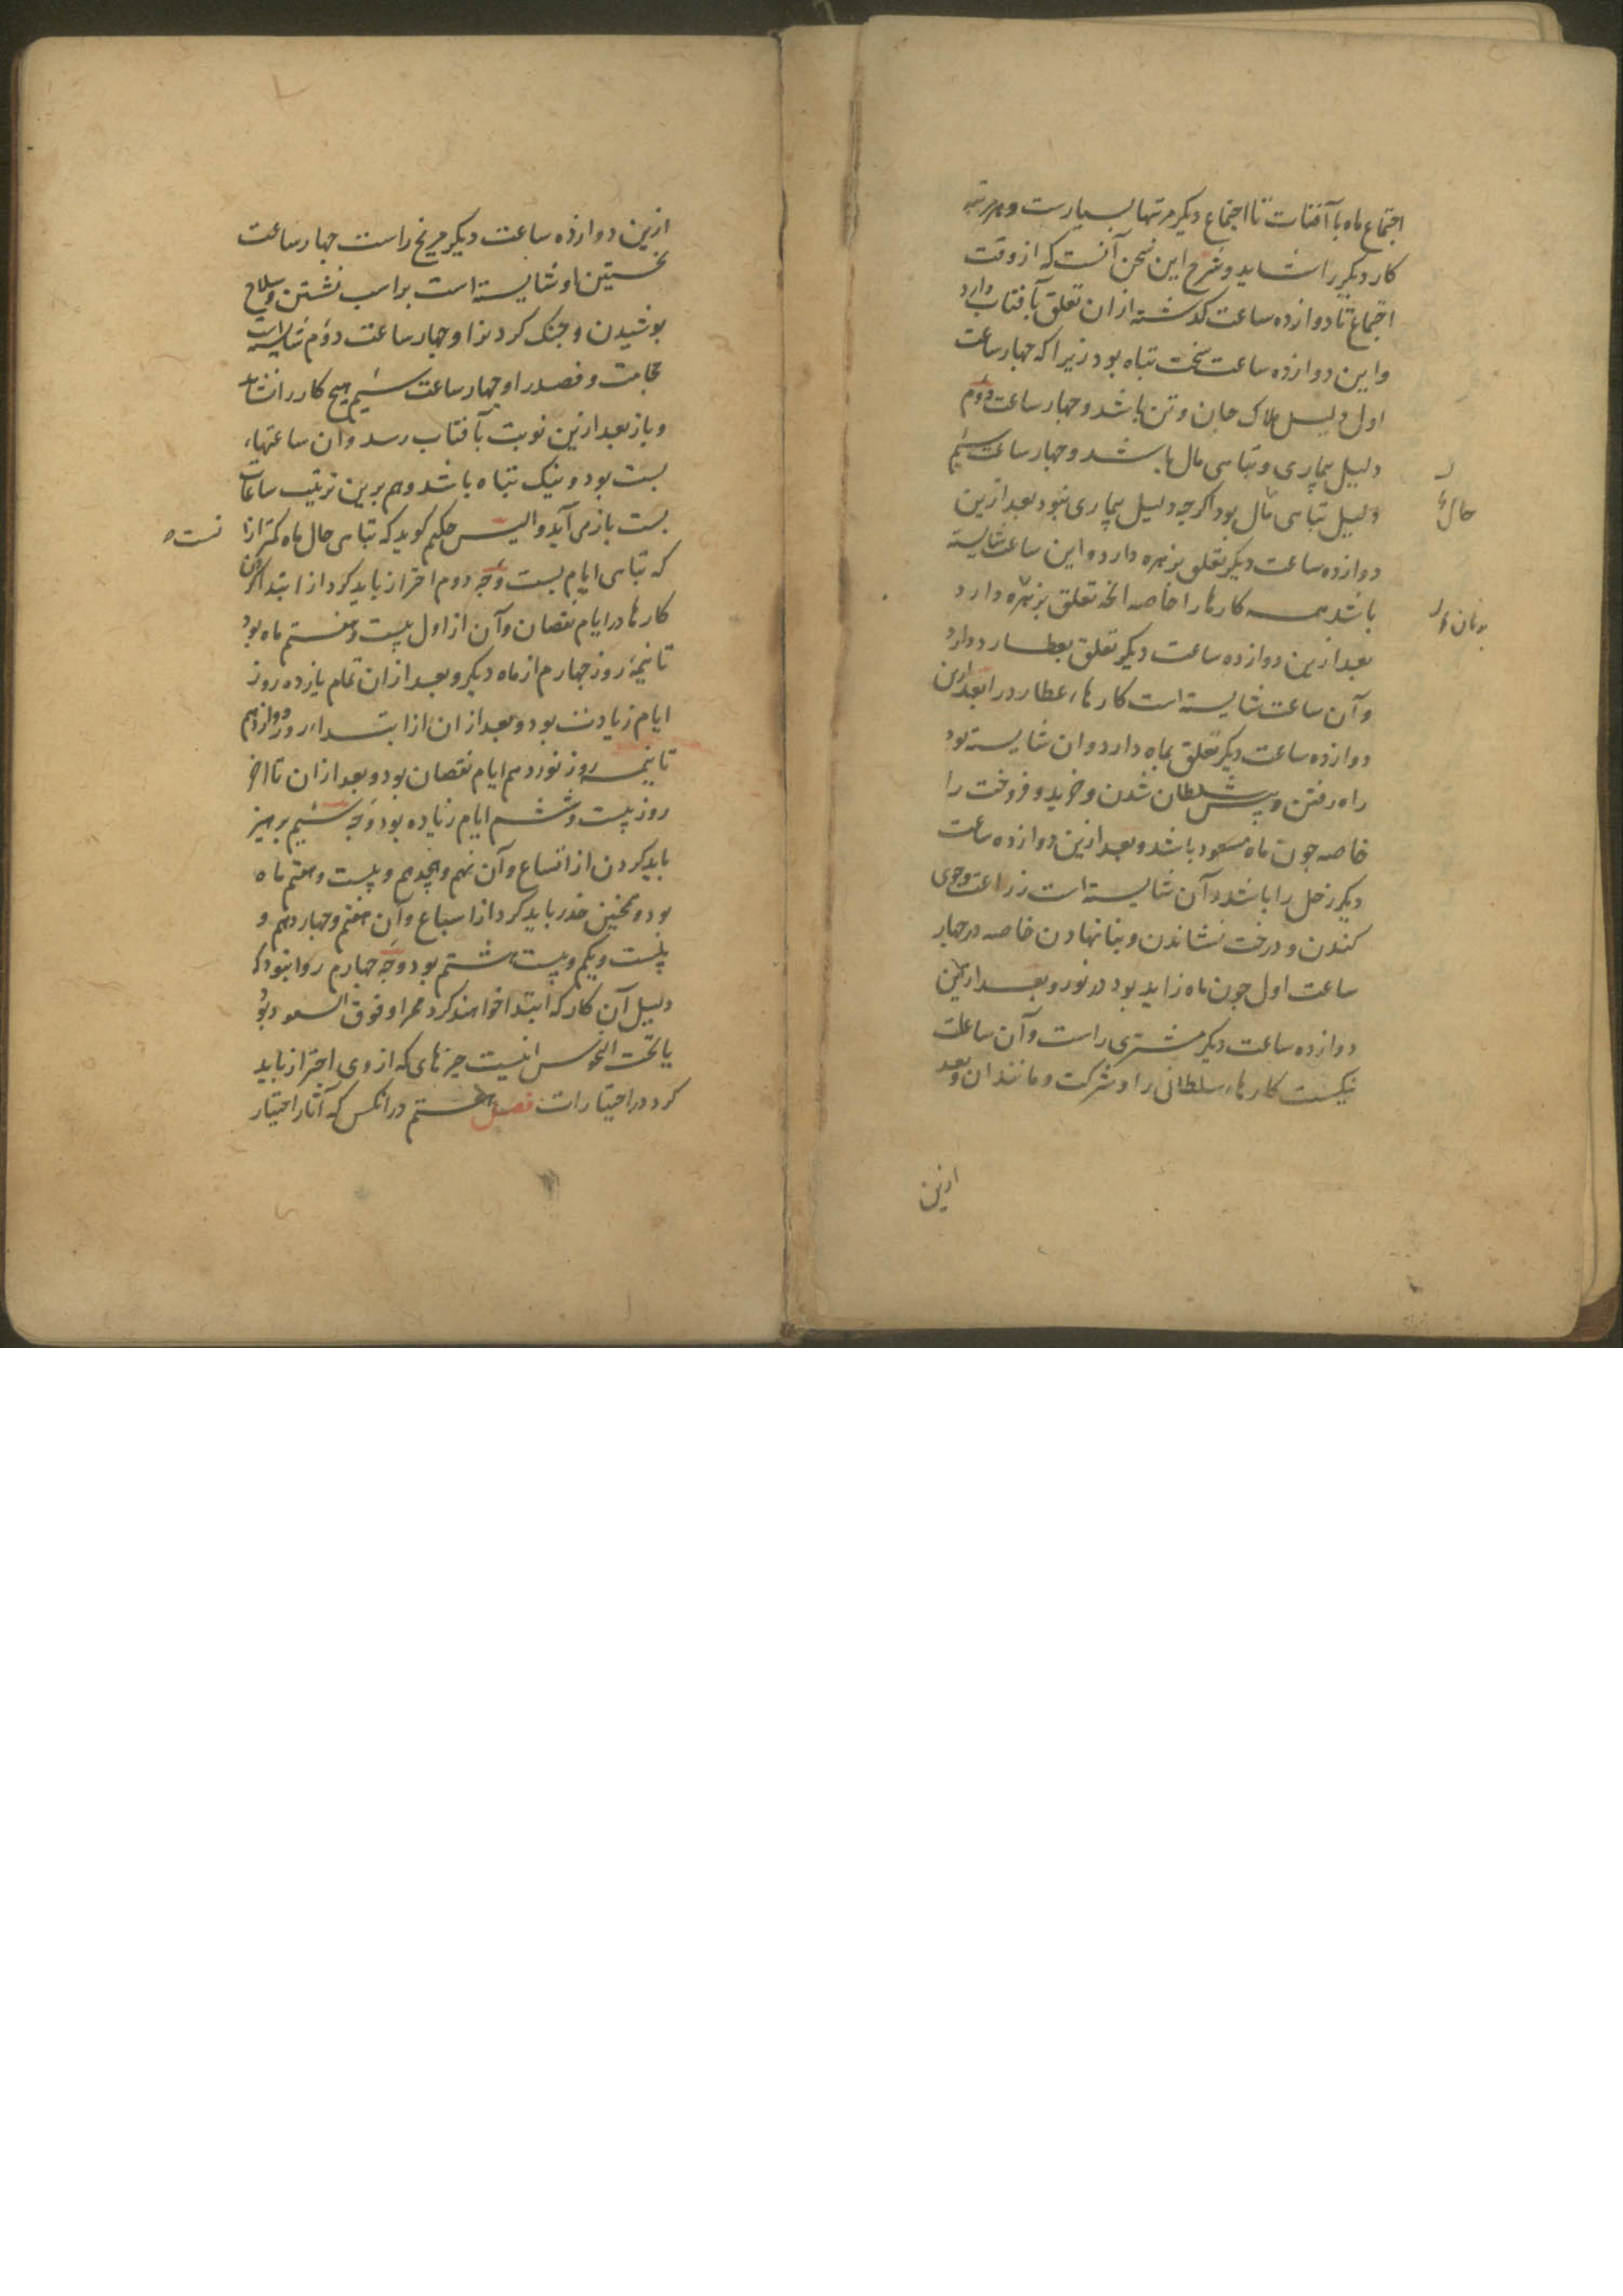 اجتماع ماه با آفتاب تا اجتماع دیکر مرتبها بسیارست و هر مرتبه
کار دیکر را شاید و شرح این سخن آنست که از وقت
اجتماع تا دوازده ساعت کذشته از ان تعلق بآفتاب دارد
و این دوازده ساعت سخت تباه بود زیرا که جهار ساعت
اول دلیل هلاک جان و تن باشد و جهار ساعت دوم
دلیل بیماری و تباهی مال باشد و جهار ساعت سیم
دلیل تباهی مال بود اکرجه دلیل بیماری نبود بعد ازین
دوازده ساعت دیکر تعلق بزهره دارد و این ساعت شایسته
باشد همه کارها را خاصه انچه تعلق بزهره دارد
بعد ازین دوازده ساعت دیکر تعلق بعطارد دارد
و آن ساعت شایسته است کارهاء عطارد را بعد ازین
دوازده ساعت دیکر تعلق بماه دارد و ان شایسته بود
راه رفتن و پیش سلطان شدن و خرید و فروخت را
خاصه جون ماه مسعود باشد و بعد ازین دوازده ساعت
دیکر زحل را باشد و آن شایسته است زراعت و جوی
کندن و درخت نشاندن و بنا نهادن خاصه در جهار
ساعت اول جون ماه زاید بود در نور و بعد ازین
دوازده ساعت دیکر مشتری راست و آن ساعت
نیکست کارهاء سلطانی را و شرکت و مانند ان و بعد
ازین
حال
ازین دوازده ساعت دیکر مریخ راست جهار ساعت
نخستین او شایسته است بر اسب نشستن و سلاح
بوشیدن و جنک کردن را و جهار ساعت دوم شایسته است
حجامت و فصد را و جهار ساعت سیم هیچ کار را نشاید
و باز بعد ازین نوبت بآفتاب رسد و آن ساعتهاء
بست بود و نیک تباه باشد و هم برین ترتیب ساعات
بست باز می آید و الیس حکیم کوید که تباهی حال ماه کمتر ازا
که تباهی ایام بست وجه دوم احتراز باید کرد از ابتدا کردن
کارها در ایام نقصان و آن از اول بیست و هفتم ماه بود
تا نیمهٔ روز جهارم از ماه دیکر و بعد از ان تمام یازده روز
ایام زیادت بود و بعد از ان از ابتداء روز دوازدهم
تا نیمه روز نوزدهم ایام نقصان بود و بعد از ان تا اخر
روز بیست و ششم ایام زیاده بود وجه سیم برهیز
باید کردن از اتساع و آن نهم و هجدهم و بیست و هفتم ماه
بود و همجنین حذر باید کرد از اسباع و آن هفتم و جهاردهم و
بیست و یکم و بیست هشتم بود وجه جهارم روا نبود که
دلیل آن کار که ابتدا خواهند کرد ممر او فوق السعود بود
یا تحت النحوس اینست جیزهای که از وی احتراز باید
کرد در اختیارات فصل هشتم در انکس که آثار اختیار